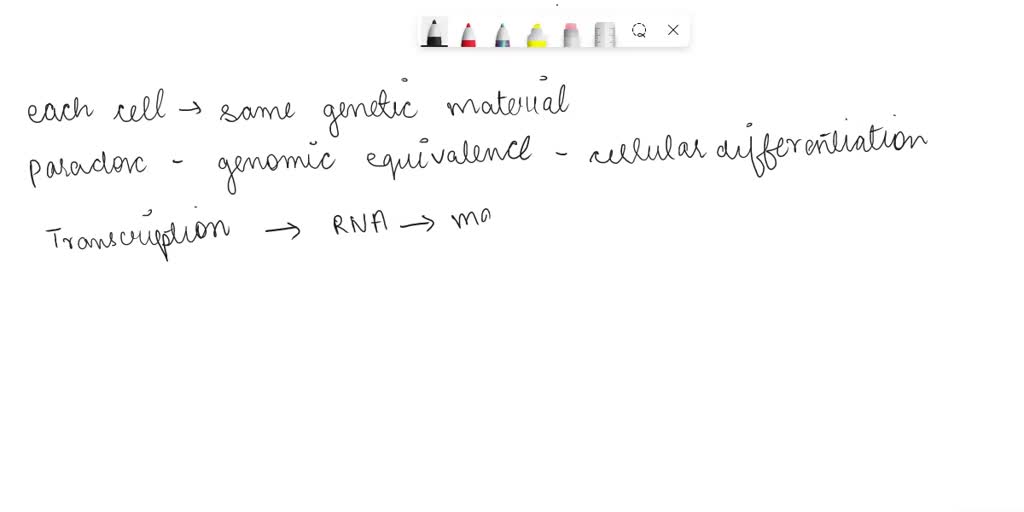 each cell → same genetic material
paradox - genomic equivalence - cellular differentiation
Transcription → RNA → ma